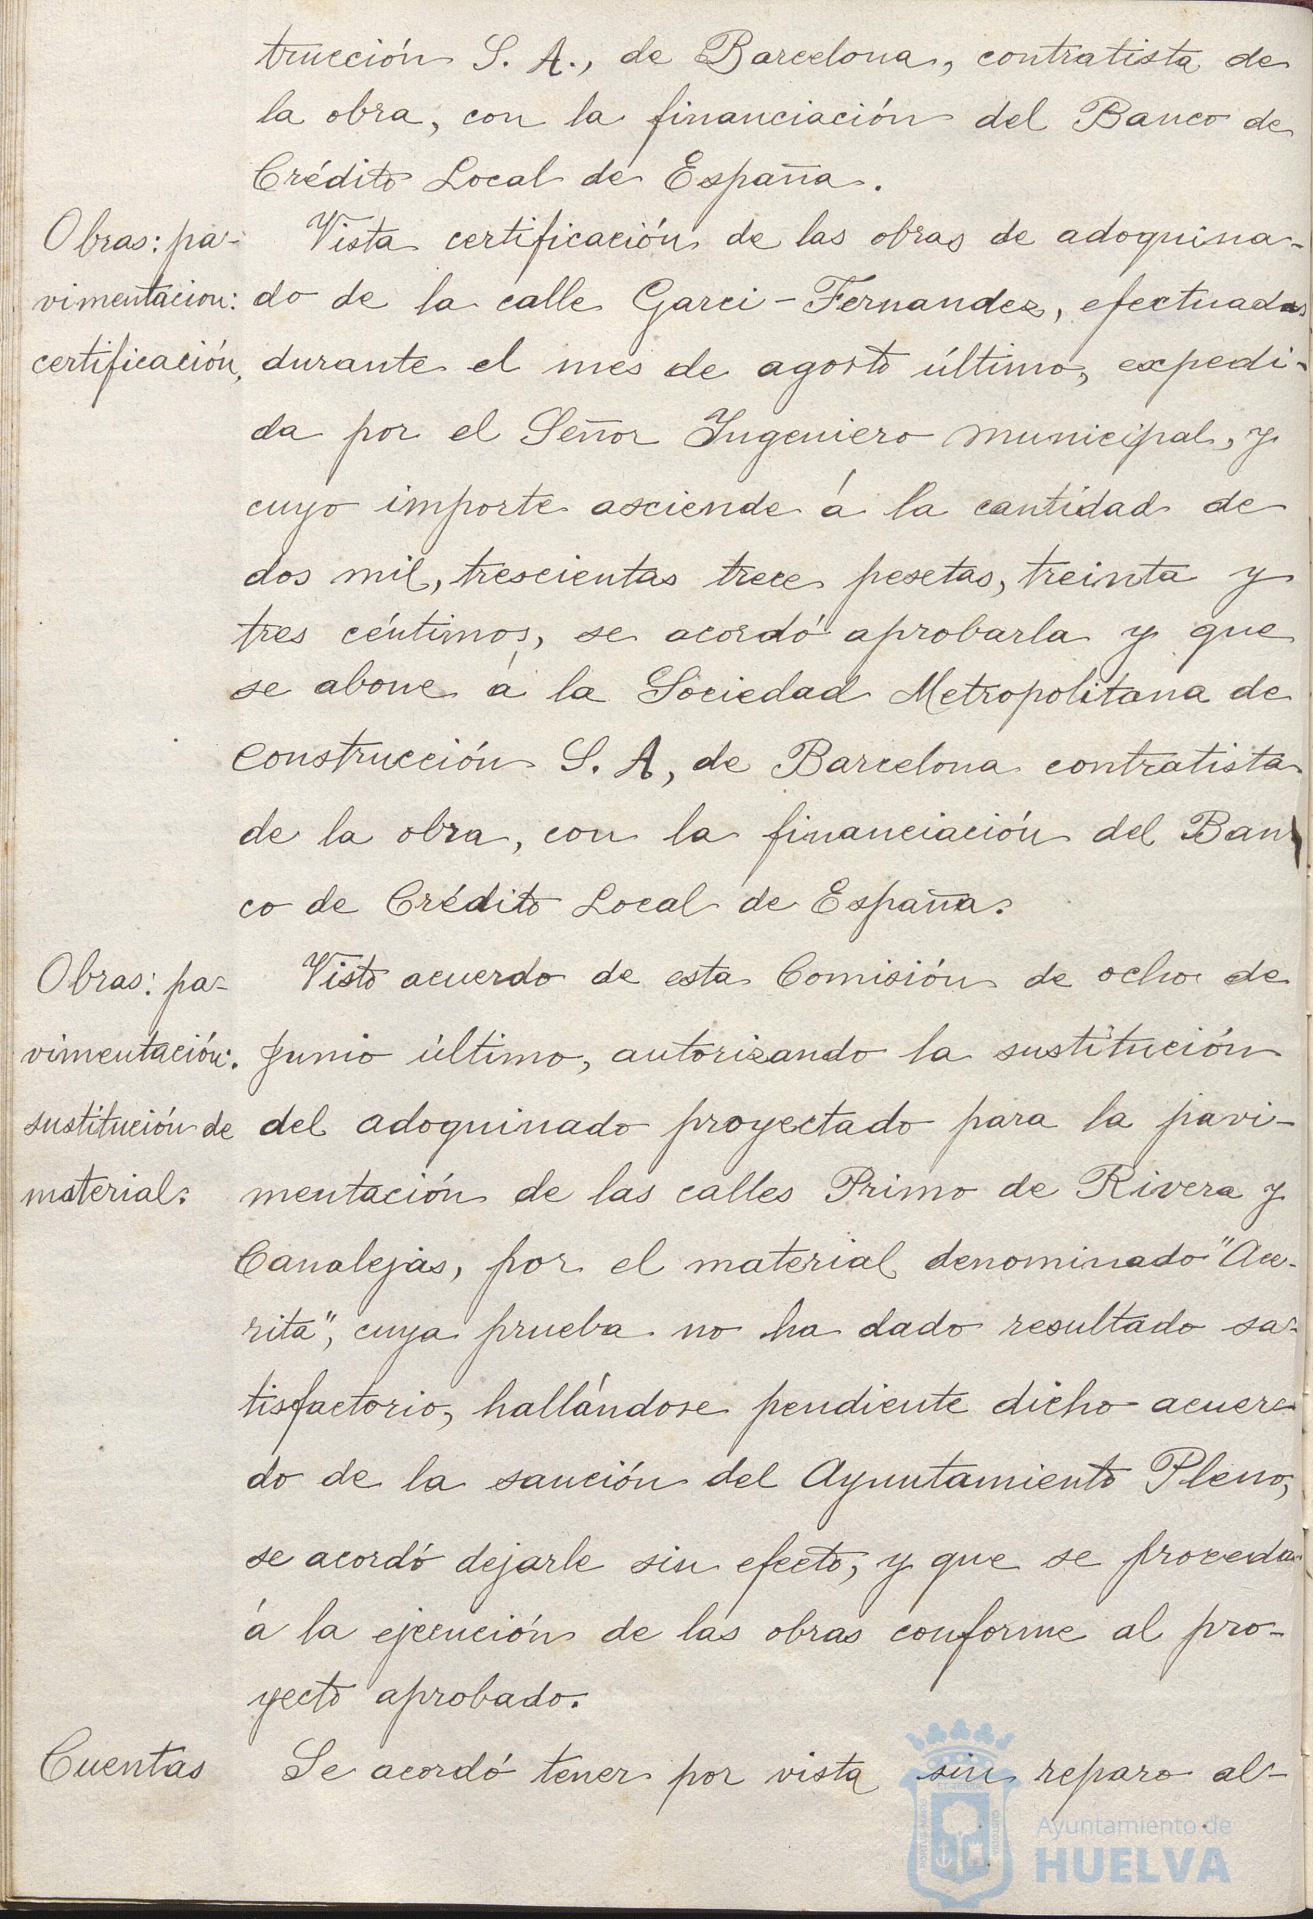 trucción S. A., de Barcelona, contratista de
la obra, con la financiación del Banco de
Crédito Local de España.
Obras: pa-
vimentacion:
certificación,
Vista certificación de las obras de adoquina-
do de la calle Garci-Fernandez, efectuadas
durante el mes de agosto último, expedi-
da por el Señor Ingeniero municipal, y
cuyo importe asciende á la cantidad de
dos mil, trescientas trece pesetas, treinta y
tres céntimos, se acordó aprobarla y que
se abone á la Sociedad Metropolitana de
Construcción S. A, de Barcelona contratista
de la obra, con la financiación del Ban-
co de Crédito Local de España.
Obras: pa-
vimentación:
sustitución de
material:
Visto acuerdo de esta Comisión de ocho de
Junio último, autorizando la sustitución
del adoquinado proyectado para la pavi-
mentación de las calles Primo de Rivera y
Canalejas, por el material denominado "Ace-
rita", cuya prueba no ha dado resultado sa-
tisfactorio, hallándose pendiente dicho acuer-
do de la sanción del Ayuntamiento Pleno,
se acordó dejarle sin efecto, y que se proceda
á la ejecución de las obras conforme al pro-
yecto aprobado.
Cuentas
Se acordó tener por vista sin reparo al-
Ayuntamiento de
HUELVA